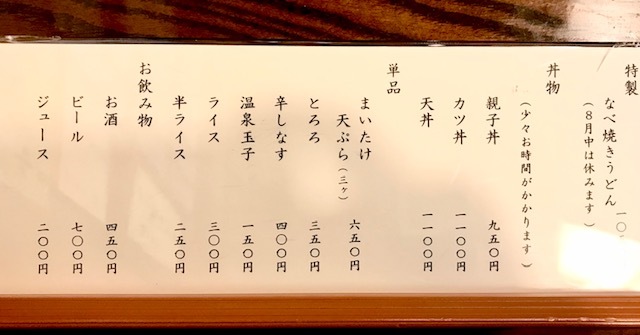 特製
なべ焼きうどん
(8月中は休みます)
丼物
(少々お時間がかかります)
親子丼 九五〇円
カツ丼 一一〇〇円
天丼 一一〇〇円
単品
まいたけ
天ぷら(三ヶ) 六五〇円
とろろ 三五〇円
辛しなす 四〇〇円
温泉玉子 一五〇円
ライス 三〇〇円
半ライス 二五〇円
お飲み物
お酒 四五〇円
ビール 七〇〇円
ジュース 二〇〇円